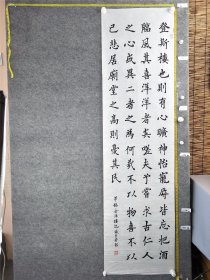 登斯樓也則有心曠神怡寵辱皆忘把酒
臨風其喜洋洋者矣嗟夫予嘗求古仁人
之心或異二者之為何哉不以物喜不以
己悲居廟堂之高則憂其民